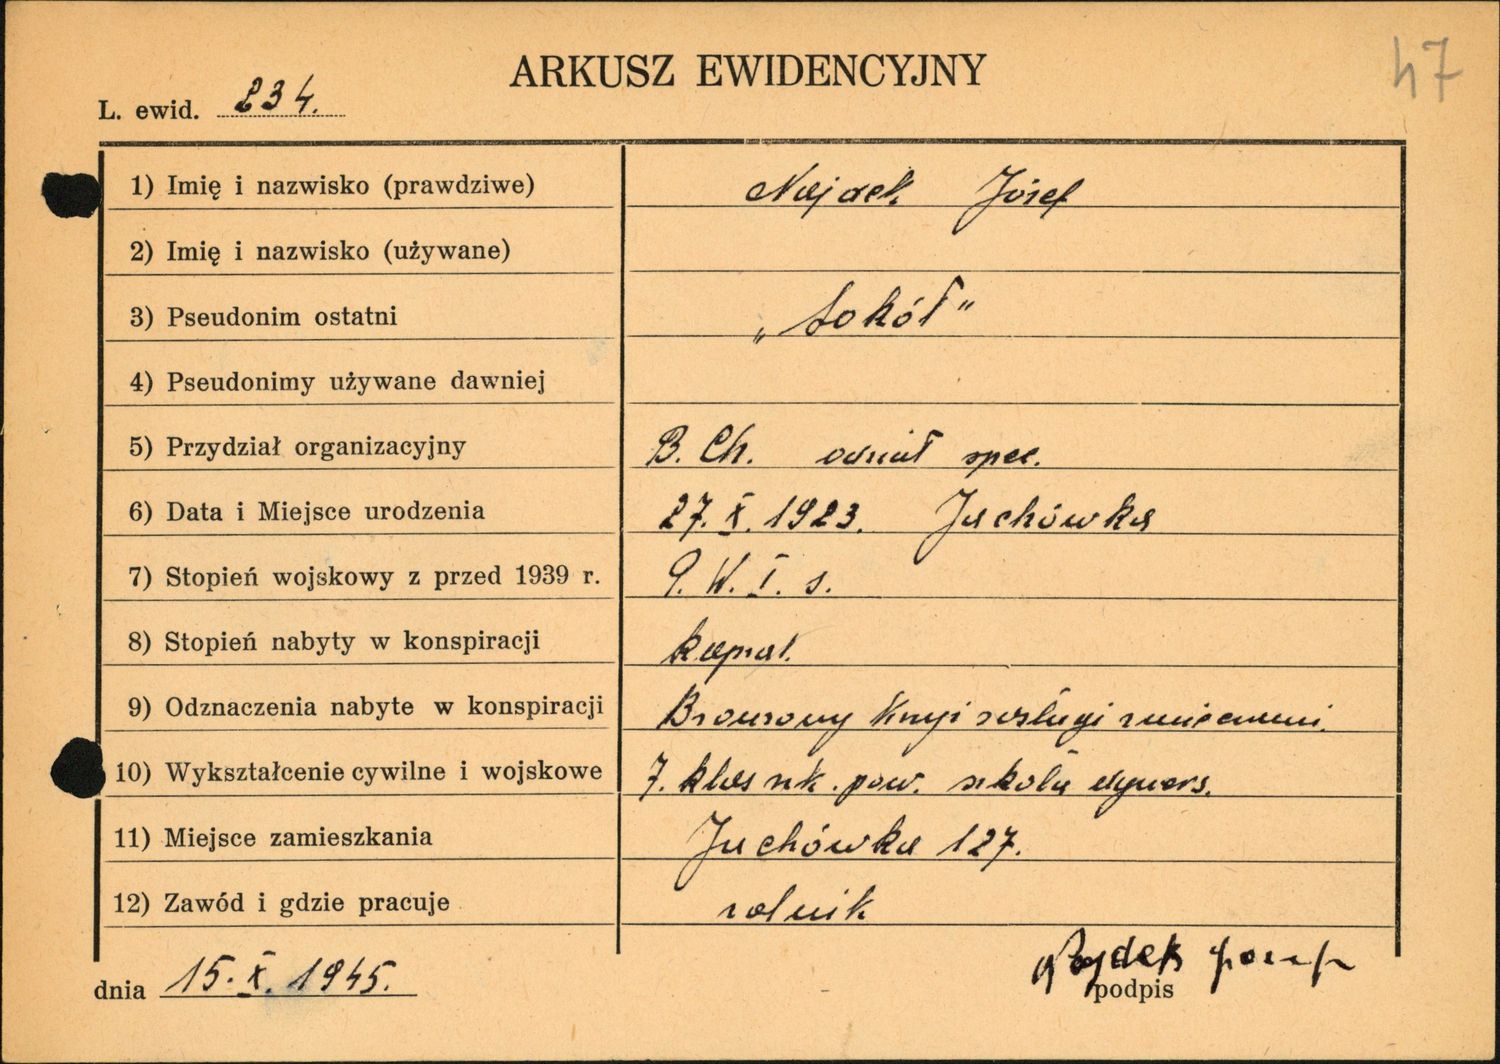 47
ARKUSZ EWIDENCYJNY
L. ewid. 234.
1) Imię i nazwisko (prawdziwe) Najdek Józef
2) Imię i nazwisko (używane)
3) Pseudonim ostatni „Sokół"
4) Pseudonimy używane dawniej
5) Przydział organizacyjny B. Ch. odział spec.
6) Data i Miejsce urodzenia 27. X. 1923. Juchówka
7) Stopień wojskowy z przed 1939 r. P. W. I. s.
8) Stopień nabyty w konspiracji kapral.
9) Odznaczenia nabyte w konspiracji Bronzowy Krzyż zasługi z mieczami.
10) Wykształcenie cywilne i wojskowe 7. klas szk. pow. szkoła dywers.
11) Miejsce zamieszkania Juchówka 127.
12) Zawód i gdzie pracuje rolnik
dnia 15. X. 1945.
podpis